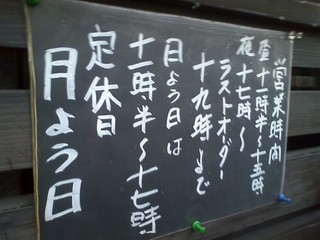 営業時間
昼 十一時半〜十五時
夜 十七時〜
ラストオーダー
十九時まで
日よう日は
十一時半〜十七時
定休日
月よう日